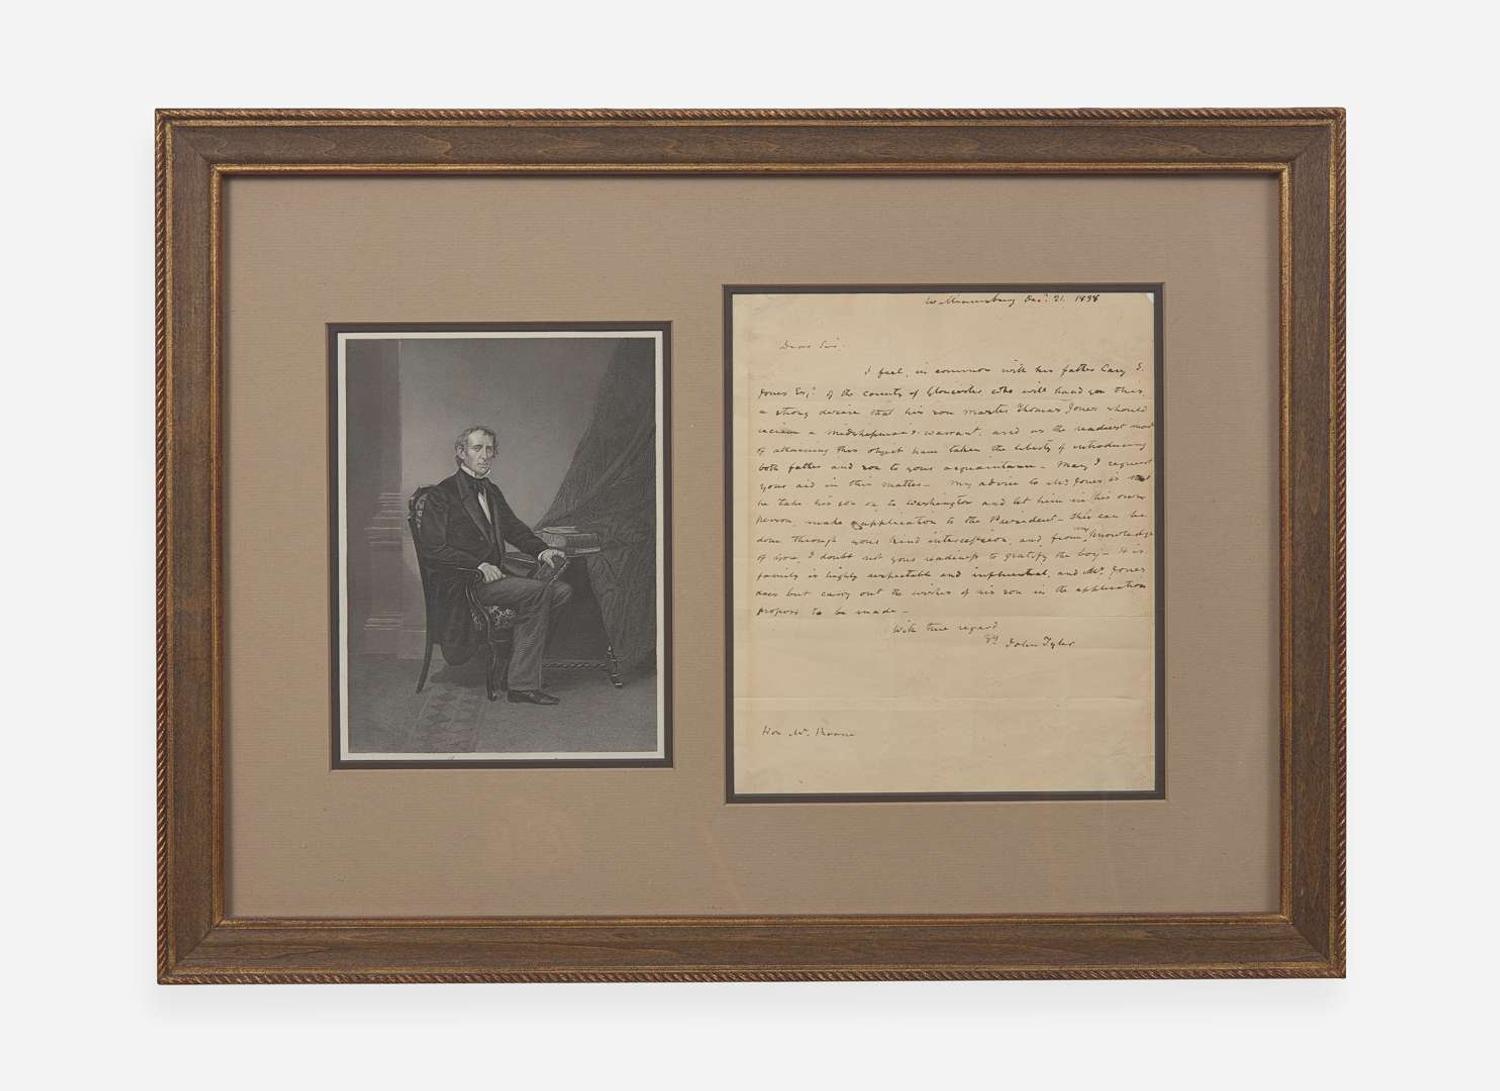 Williamsburg Decr. 21. 1838
Dear Sir.
I feel, in common with his father Cary S.
Jones Esqr. of the county of Gloucester, who will hand you this,
a strong desire that his son Master Thomas Jones should
receive a midshipman's warrant, and as the readiest mode
of attaining this object have taken the liberty of introducing
both father and son to your acquaintance - May I request
your aid in this matter - My advice to Mr. Jones is that
he take his son on to Washington and let him in his own
person, make application to the President - this can be
done through your kind intercession, and from my knowledge
of you, I doubt not your readiness to gratify the boy - His
family is highly respectable and influential, and Mr. Jones
does but carry out the wishes of his son in the application
proposed to be made -
With true regard
Yrs John Tyler
Hon Mr. Roane